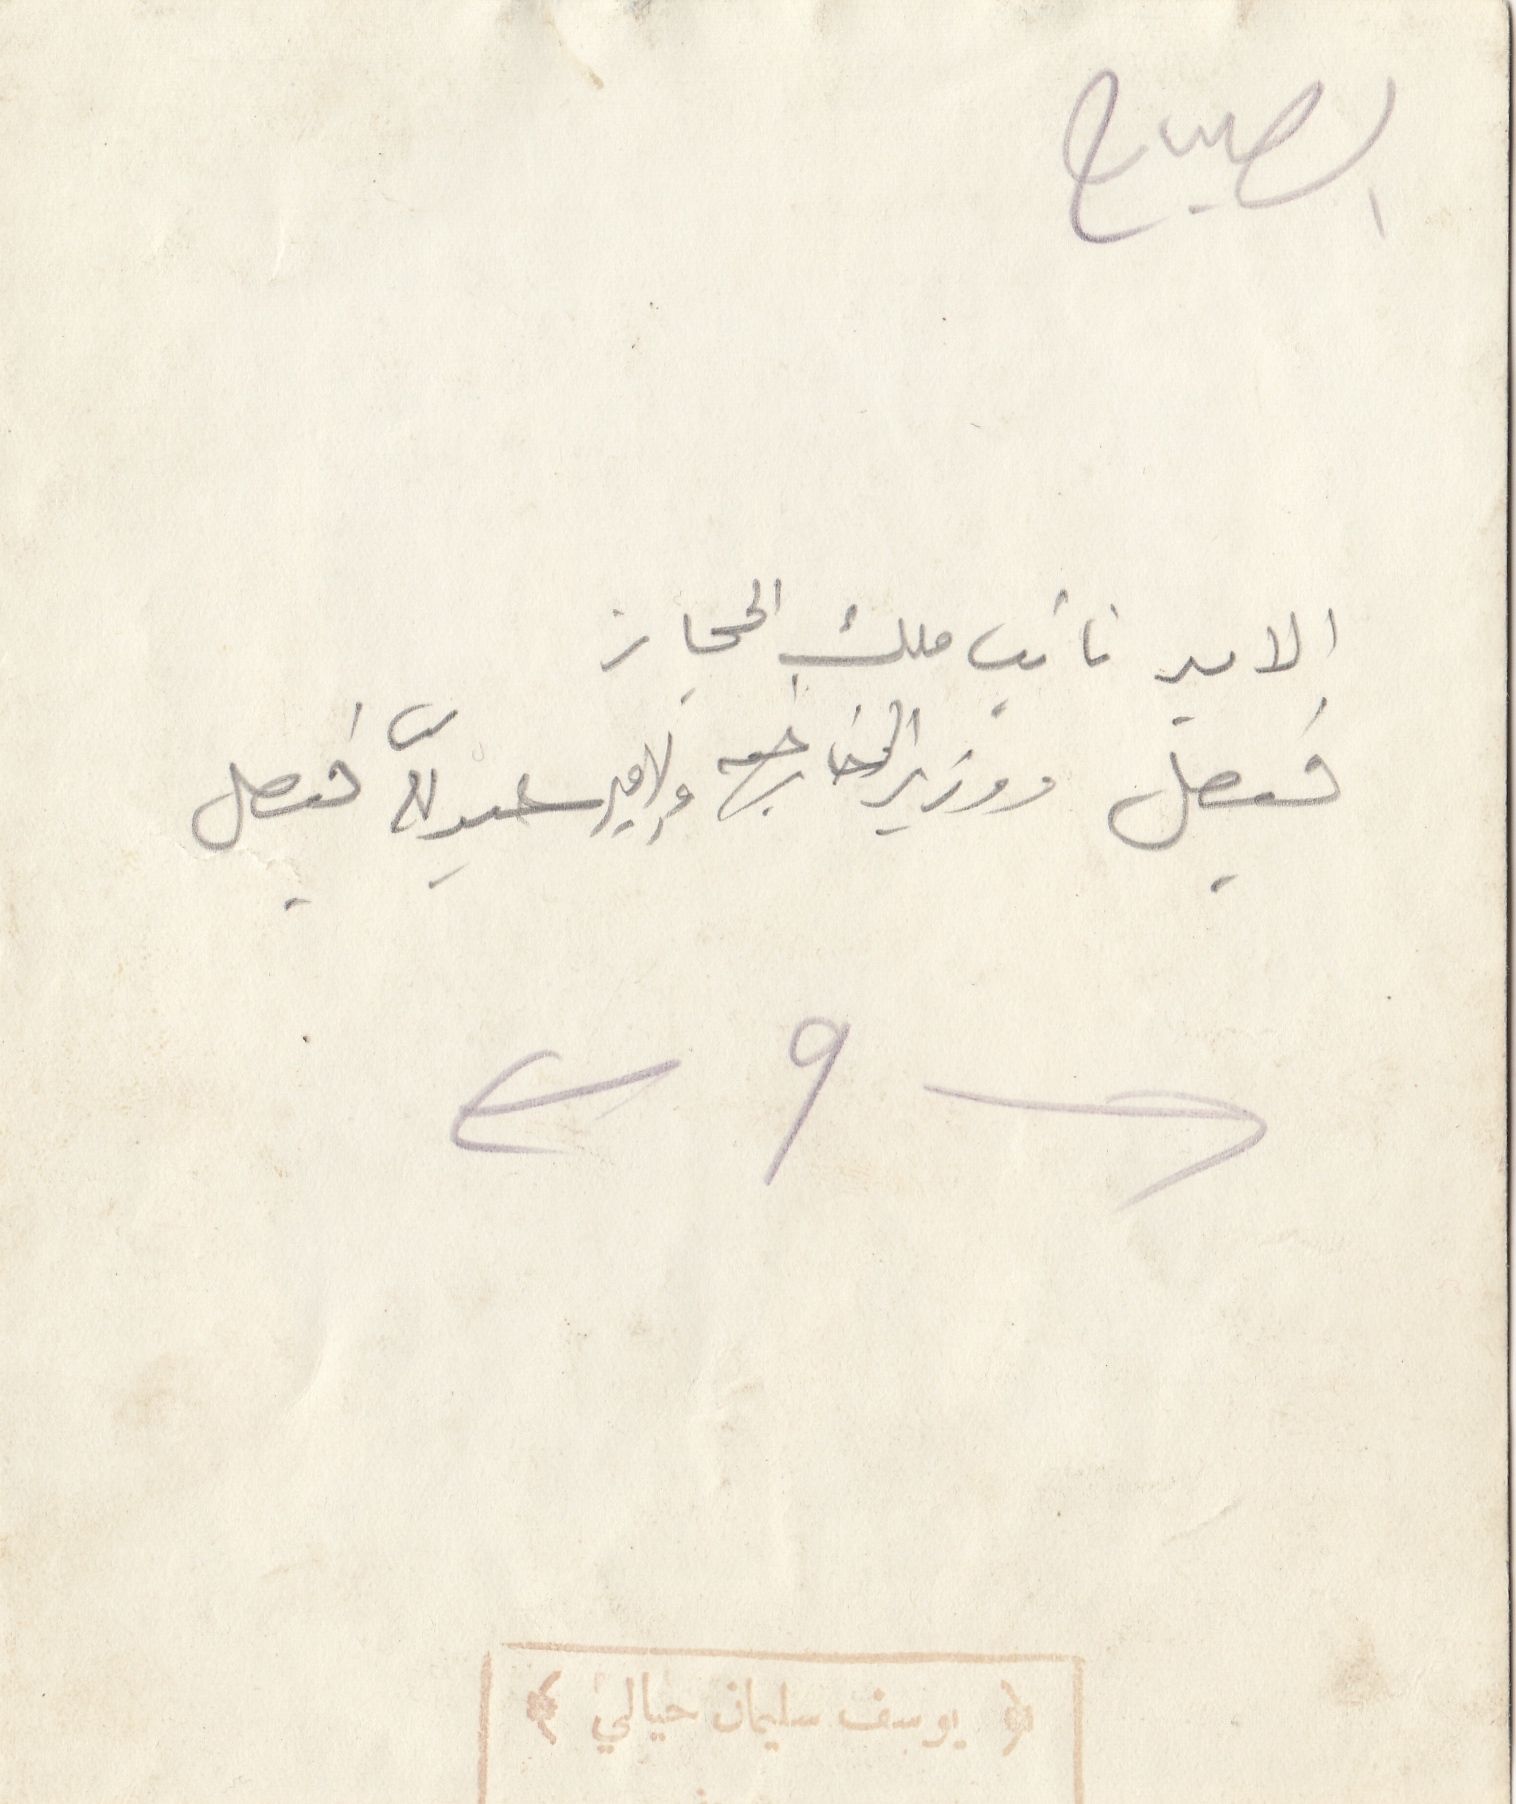 الصباح
الامير نائب ملك الحجاز
فيصل ووزير الخارجيه ولامير عبدالله فيصل
٩
يوسف سليمان حيالي